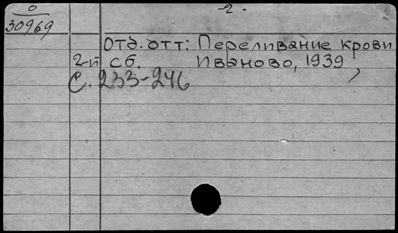 -2-
О
30969
Отд. отт: Переливание крови
2-й сб. Иваново, 1939,
С. 233-246